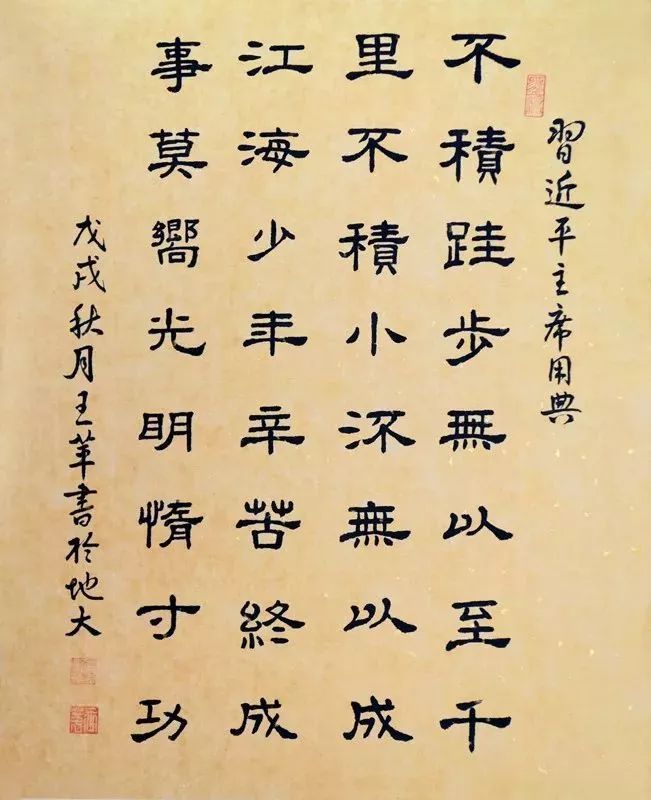 習近平主席用典
不積跬步無以至千
里不積小流無以成
江海少年辛苦終成
事莫嚮光明惰寸功
戊戌秋月王書於地大